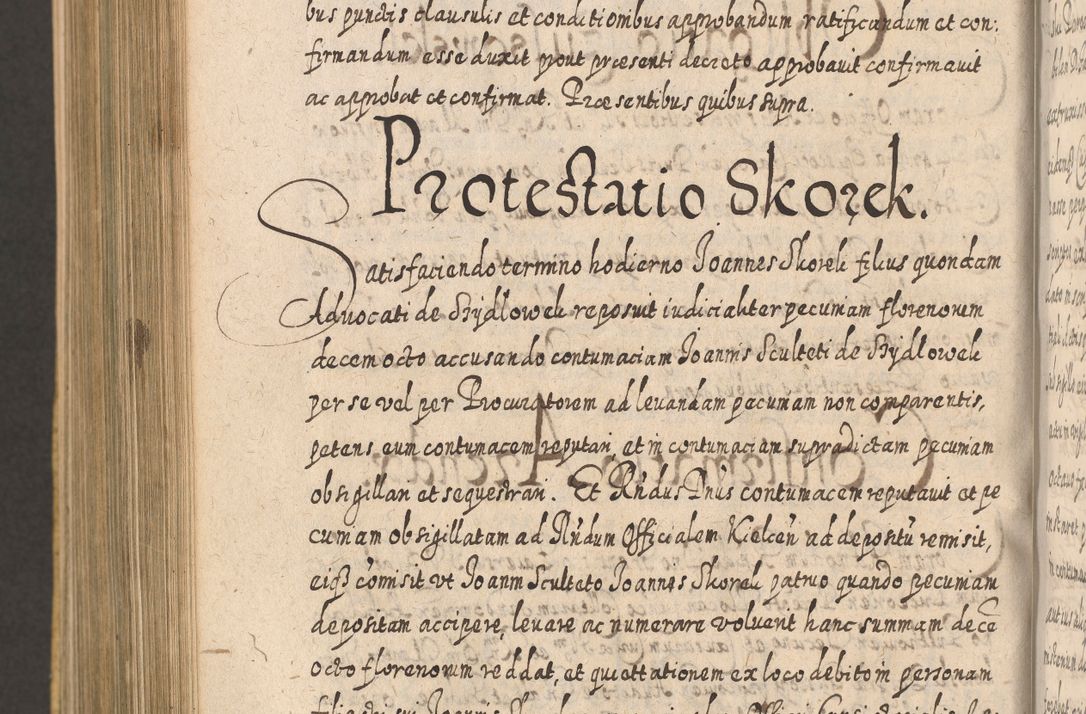 bus punctis clausulis et conditionibus approbandum ratificandum et con:
firmandum esse duxit prout præsenti decreto approbauit confirmauit
ac approbat et confirmat. Præsentibus quibus supra.
Protestatio Skorek.
Satisfaciendo termino hodierno Joannes Skorek filius quondam
Advocati de Szydlowek reposuit iudicialiter pecuniam florenorum
decem octo accusando contumaciam Joannis Sculteti de Szydlowek
per se vel per Procuratorem ad leuandam pecuniam non comparentis,
petens eum contumacem reputari, et in contumaciam supradictam pecuniam
obsigillari et sequestrari. Et Rndus Dnus contumacem reputauit et pe
cuniam obsigillatam ad Rndum Officialem Kielceñ ad depositũ remisit,
eiqȝ cõmisit vt Joanni Sculteto Joannis Skorek patruo quando pecuniam
depositam accipere, leuare ac numerare voluerit hanc summam decẽ
octo florenorum reddat, et quiettationem ex loco debito in personam